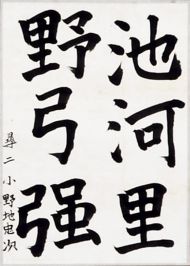 池河里
野弓强
尋二 小野地忠次